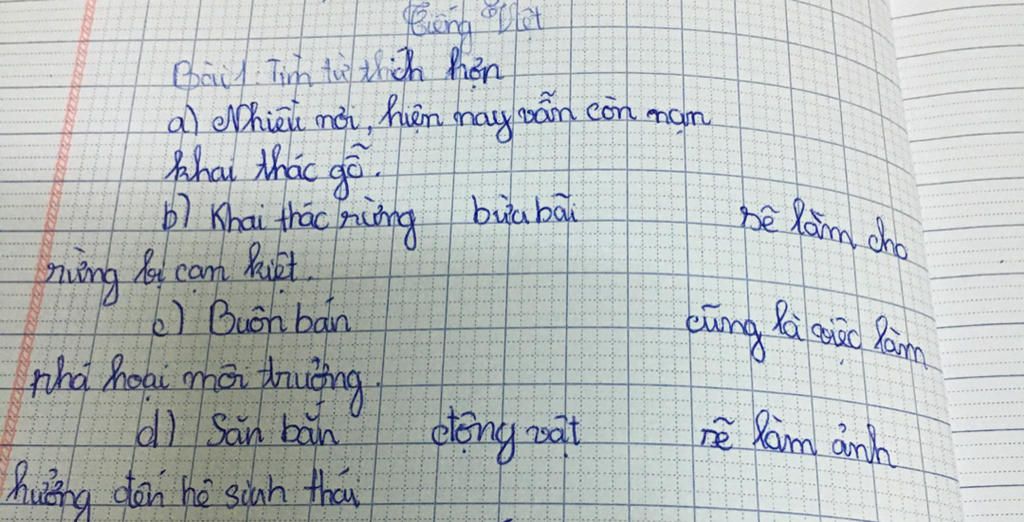 Tiếng Việt
Bài 1: Tìm từ thích hợp
a) Nhiều nơi, hiện nay vẫn còn nạn
khai thác gỗ.
b) Khai thác rừng bừa bãi sẽ làm cho
rừng bị cạn kiệt.
c) Buôn bán cũng là việc làm
phá hoại môi trường.
d) Săn bắn động vật sẽ làm ảnh
hưởng đến hệ sinh thái